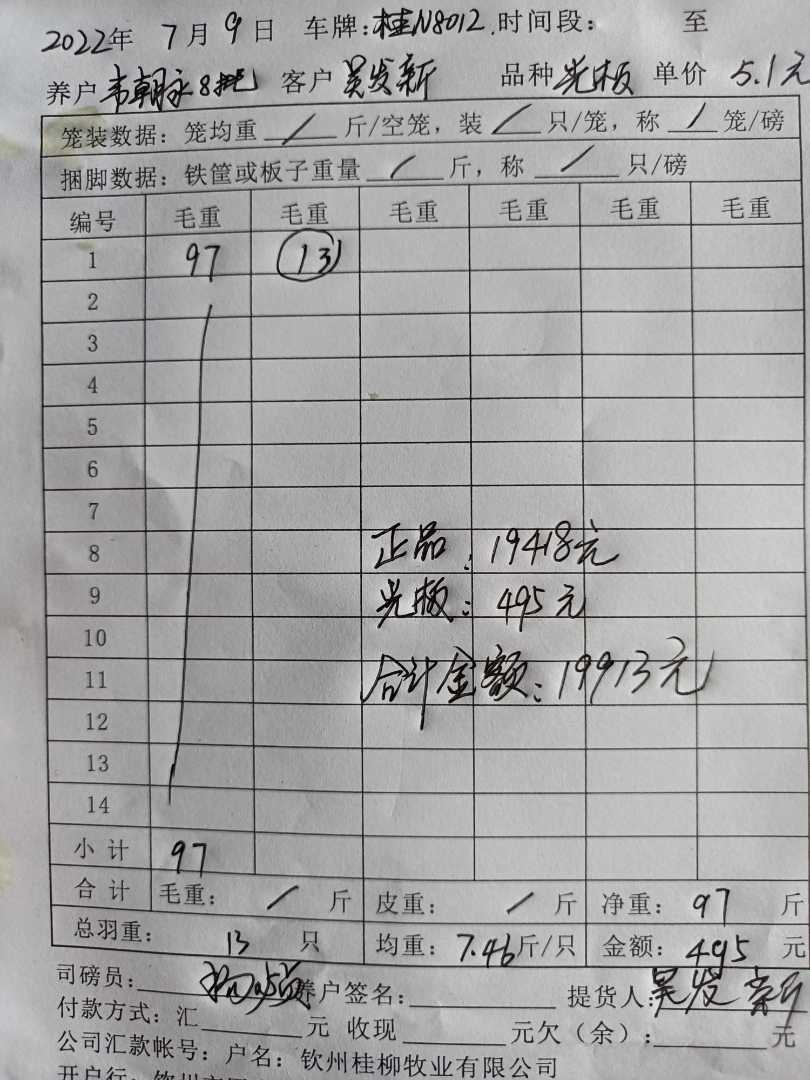 2022年 7月9日 车牌:桂N8012. 时间段: 至
养户 韦朝永8批 客户 吴发新 品种 光板 单价 5.1元
笼装数据: 笼均重 / 斤/空笼, 装 / 只/笼, 称 / 笼/磅
捆脚数据: 铁筐或板子重量 / 斤, 称 / 只/磅
编号 毛重 毛重 毛重 毛重 毛重 毛重
1 97 13
2
3
4
5
6
7
8 正品: 19418元
9 光板: 495元
10
11 合计金额: 19913元
12
13
14
小计 97
合计 毛重: / 斤 皮重: / 斤 净重: 97 斤
总羽重: 13 只 均重: 7.46斤/只 金额: 495 元
司磅员: 养户签名: 提货人: 吴发新
付款方式: 汇 元 收现 元欠(余): 元
公司汇款帐号: 户名: 钦州桂柳牧业有限公司
开户行: